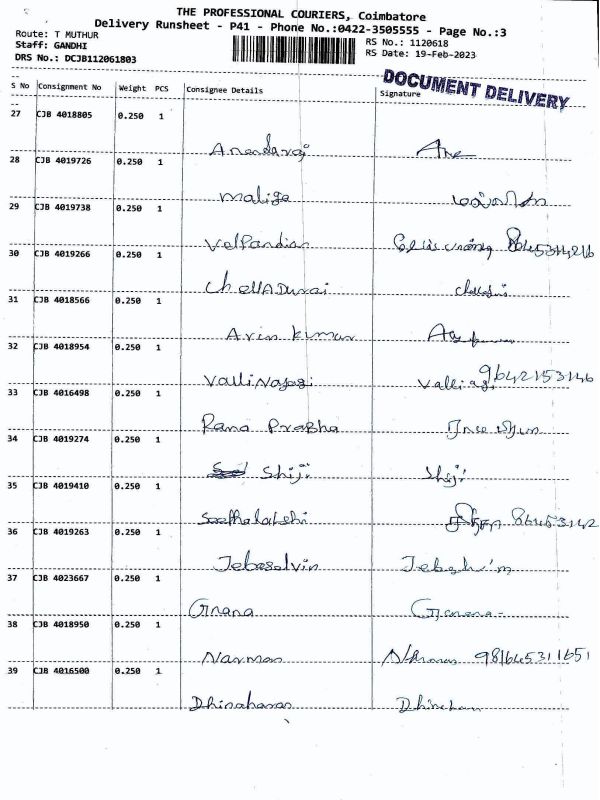 THE PROFESSIONAL COURIERS, Coimbatore
Delivery Runsheet - P41 - Phone No.:0422-3505555 - Page No.:3
Route: T MUTHUR
Staff: GANDHI
DRS No.: DCJB112061803
RS No.: 1120618
RS Date: 19-Feb-2023
DOCUMENT DELIVERY
S No Consignment No Weight PCS Consignee Details Signature
27 CJB 4018805 0.250 1
Anandaraj
28 CJB 4019726 0.250 1
maliga
29 CJB 4019738 0.250 1
VelPandian
30 CJB 4019266 0.250 1
ChellADurai
31 CJB 4018566 0.250 1
Arin kumar
32 CJB 4018954 0.250 1
9642153146
33 CJB 4016498 0.250 1
Rana Prabha
34 CJB 4019274 0.250 1
Shiji Shiji
35 CJB 4019410 0.250 1
36 CJB 4019263 0.250 1
Jebaselvin
37 CJB 4023667 0.250 1
Gnana Gnana
38 CJB 4018950 0.250 1
Narman
39 CJB 4016500 0.250 1
Dhinaharan